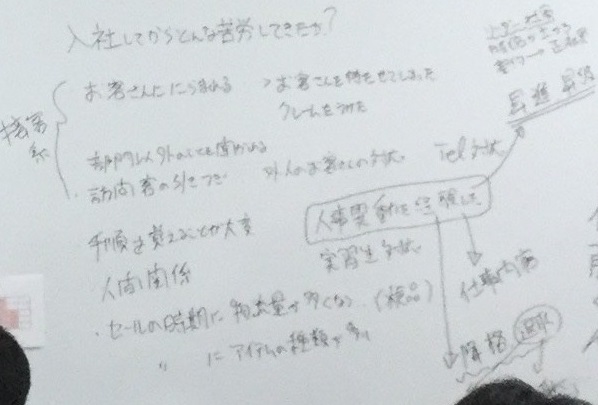 入社してからどんな苦労してきたか?
お客さんににらまれる
>お客さんを待たせてしまった
クレームをうけた
接客系
部門以外のことを聞かれる
訪問客の引きつぎ
外人のお客さんの対応
Tel対応
昇進 昇級
人事異動を経験した
手順を覚えることが大変
実習生対応
人間関係
仕事内容
・セールの時期に物流量が多くなる (検品)
〃 にアイテムの種類が多い
降格
退职